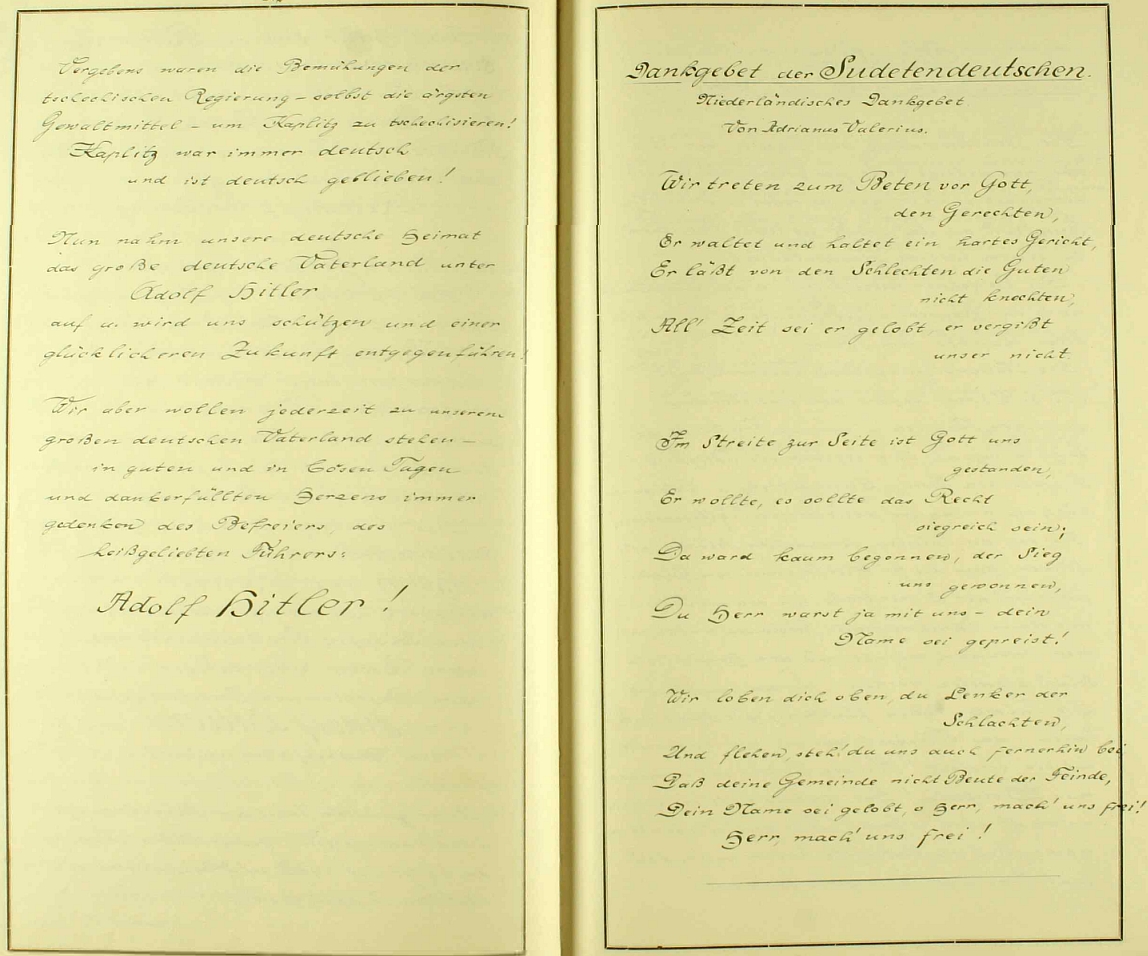 Vergebens waren die Bemühungen der
tschechischen Regierung – selbst die ärgsten
Gewaltmittel – um Kaplitz zu tschechisieren!
Kaplitz war immer deutsch
und ist deutsch geblieben!
Nun nahm unsere deutsche Heimat
das große deutsche Vaterland unter
Adolf Hitler
auf u. wird uns schützen und einer
glücklicheren Zukunft entgegenführen!
Wir aber wollen jederzeit zu unserem
großen deutschen Vaterland stehen –
in guten und in bösen Tagen
und dankerfüllten Herzens immer
gedenken des Befreiers, des
heißgeliebten Führers:
Adolf Hitler!
Dankgebet der Sudetendeutschen.
Niederländisches Dankgebet
Von Adrianus Valerius.
Wir treten zum Beten vor Gott,
den Gerechten,
Er waltet und haltet ein hartes Gericht,
Er läßt von den Schlechten die Guten
nicht knechten,
All' Zeit sei er gelobt, er vergißt
unser nicht.
Im Streite zur Seite ist Gott uns
gestanden,
Er wollte, es sollte das Recht
siegreich sein;
Da ward kaum begonnen, der Sieg
uns gewonnen,
Du Herr warst ja mit uns – dein
Name sei gepreist!
Wir loben dich oben, du Lenker der
Schlachten,
Und flehen, steh' du uns auch fernerhin bei
Daß deine Gemeinde nicht Beute der Feinde,
Dein Name sei gelobt, o Herr, mach' uns frei!
Herr, mach' uns frei!